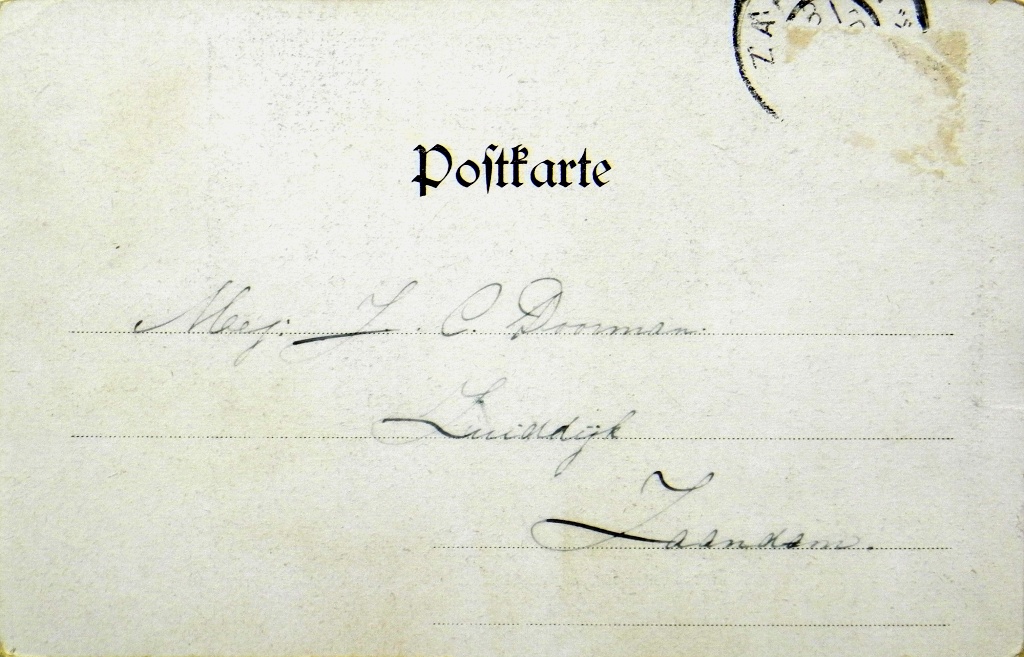 ZA
Postkarte
Mej. J. C. Doorman.
Zuiddijk
Zaandam.